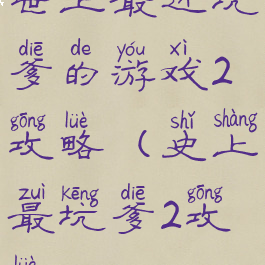 世上最近坑
diē de yóu xì
爹的游戏2
gōng lüè shǐ shàng
攻略（史上
zuì Kēng diē gōng
最坑爹2攻
lüè